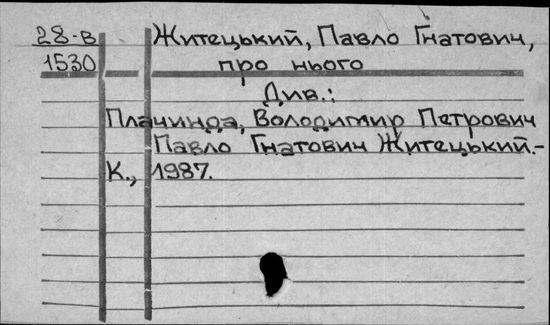 28-В Житецький, Павло Гнатович,
1530 про нього
Див.:
Плачинда, Володимир Петрович
Павло Гнатович Житецький.-
К., 1987.